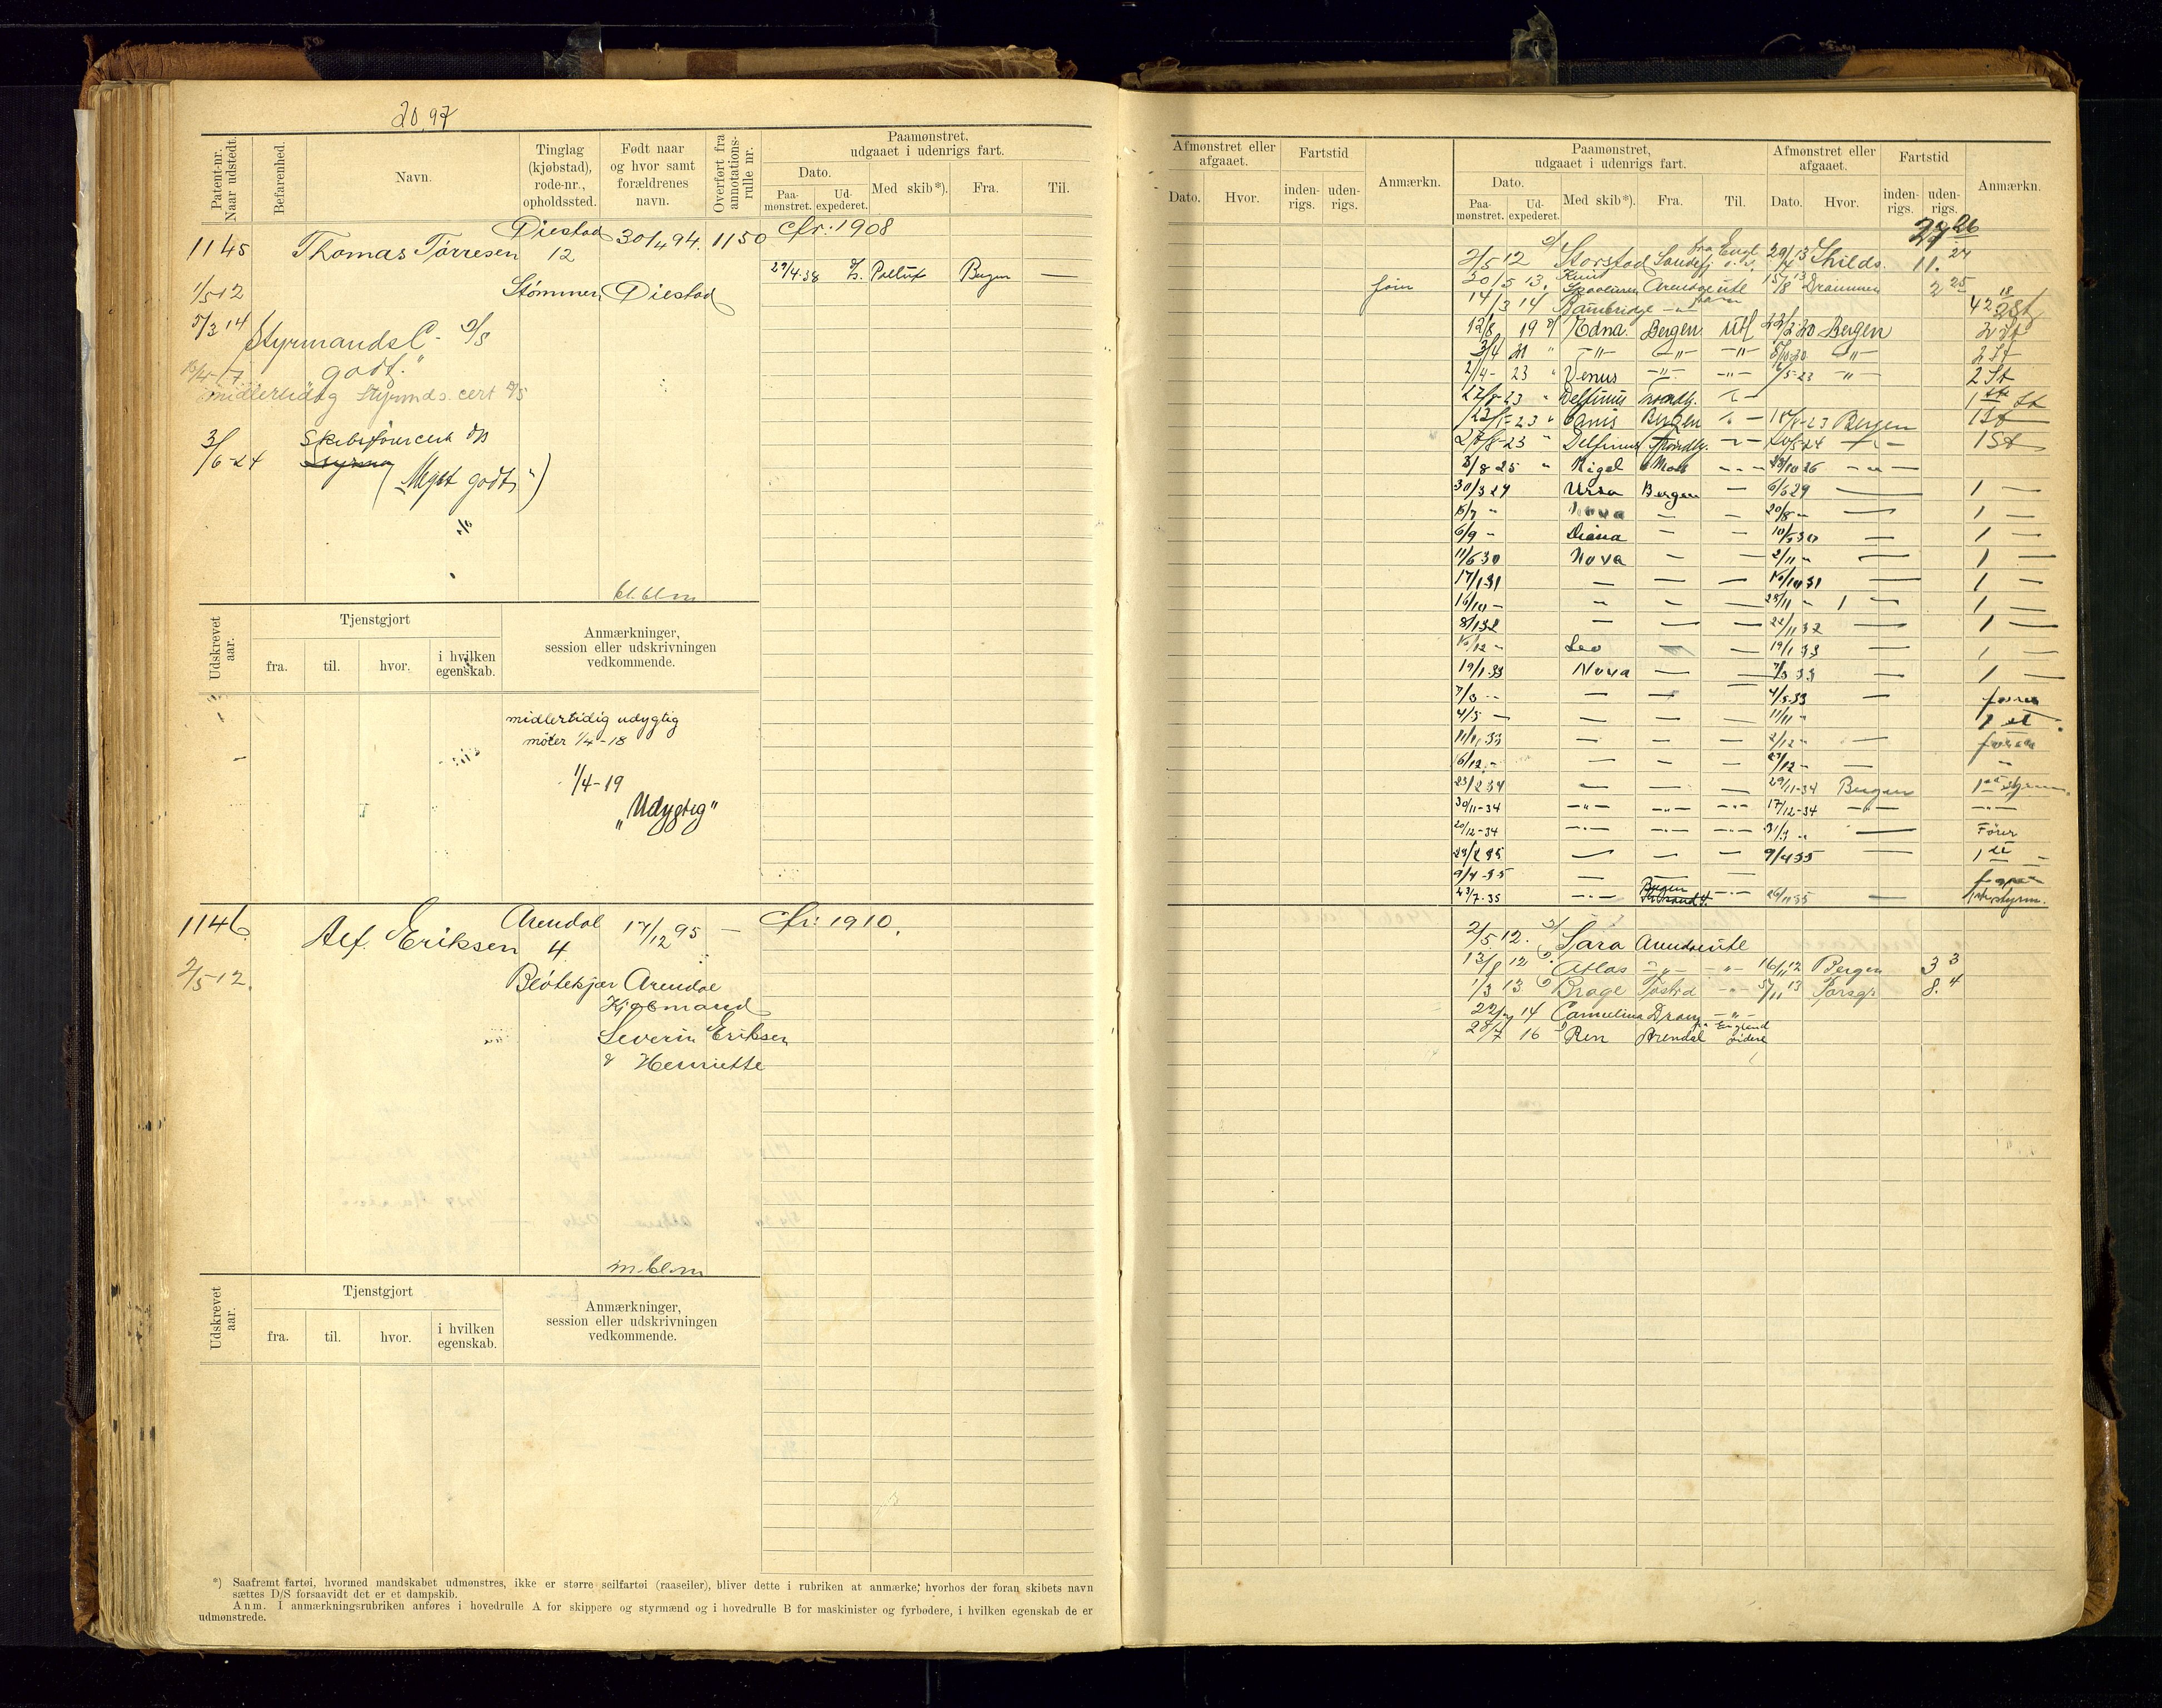 20,97
Patent-nr. Naar udstedt.
Befarenhed.
Navn.
Tinglag (kjøbstad), rode-nr., opholdssted.
Født naar og hvor samt forældrenes navn.
Overført fra annotations-rulle nr.
Paamønstret, udgaaet i udenrigs fart.
Dato.
Paa-mønstret.
Ud-expederet.
Med skib*).
Fra.
Til.
1145 Thomas Tørresen Øiestad 12 30/4 94. 1150 cfr: 1908
29/4-38 Pollux Bergen —
2/5 12 Strømmen Øiestad
5/3 14 Styrmands C. D/S
"godt."
midlertidig Styrmds. cert D/S
3/6-24 Skibsførercert D/S
("Meget godt")
bl.bl.m
Udskrevet aar.
Tjenstgjort
fra. til. hvor. i hvilken egenskab.
Anmærkninger, session eller udskrivningen vedkommende.
midlertidig udygtig
møter 1/4-18
1/4-19
"Udygtig"
1146. Alf. Eriksen Arendal 4 17/12 95 — cfr: 1910.
2/5-12. Blötekjær Arendal
Kjøbmand
Severin Eriksen
& Henriette
m.bl.m
Udskrevet aar.
Tjenstgjort
fra. til. hvor. i hvilken egenskab.
Anmærkninger, session eller udskrivningen vedkommende.
*) Saafremt fartøi, hvormed mandskabet udmønstres, ikke er større seilfartøi (raaseiler), bliver dette i rubriken at anmærke, hvorhos der foran skibets navn
sættes D/S forsaavidt det er et dampskib.
Anm. I anmærkningsrubriken anføres i hovedrulle A for skippere og styrmænd og i hovedrulle B for maskinister og fyrbødere, i hvilken egenskab de er
udmønstrede.
Afmønstret eller afgaaet.
Dato. Hvor.
Fartstid
inden-rigs. uden-rigs.
Anmærkn.
Paamønstret, udgaaet i udenrigs fart.
Dato.
Paa-mønstret. Ud-expederet.
Med skib*). Fra. Til.
Afmønstret eller afgaaet.
Dato. Hvor.
Fartstid
inden-rigs. uden-rigs.
Anmærkn.
27 26
2/5 12 Storstad Sandefj. fra Engl. Shilds. 11. 24
20/5 13. Arendal ute 15/8 13 Drammen 2 25
14/3 14 Bainbridge 42 18
12/8 19 Edna. Bergen Utl 20 Bergen 2 St
3/4 20 " —"— —"— —"— —"— 2 St
2/4- 23 " Venus —"— —"— 23 —"— 2 St
23 " Delfinus Trondhj. 1ste St
23 " Canis Bergen 23 Bergen 1 St
23 " Delfinus Trondhj. 24 1 St
8/8 25 " Rigel Moss 26 —"—
30/3 29 Ursa Bergen — 6/6 29 — 1 —
15/7 " Nova — — 20/8 " — 1 —
6/9 - Diana — — 10/5 30 — 1 —
11/6 30 Nova — — 2/11 " — 1 —
17/1 31 — — — 16/10 31 — 1 —
16/10 - — — — 28/11 " — 1 —
8/1 32 — — — 22/11 32 — 1 —
10/12 - Leo — — 19/1 33 — 1 —
19/1 33 Nova — — 7/3 33 — 1 —
7/3 - — — 4/5 33 — fører
4/5 — — — — 11/11 " 1 st
11/11 33 — — — 2/12 " — fører
6/12 - — — — 27/12 - — "
23/2 34 — — — 29/11-34 Bergen 1ste styrm.
30/11-34 —"— —"— —"— 17/12-34 —"— —"—
20/12-34 —"— —"— —"— 31/1 " — Fører
28/2 35 — — — 9/4 35 — 1 ste —
9/4-35 — —
23/7-35 —"— Bergen —"— 26/11 35 — 1ste styrm.
2/5. 12. Sara Arendal ute
13/8 12 Atlas —"— —"— 16/11 12 Bergen 3 3
1/3 13 Brage —"— 5/11 13 Porsgr 8. 4
22/7 14 Camelina Dram —"—
28/7 16 Ren Arendal England videre